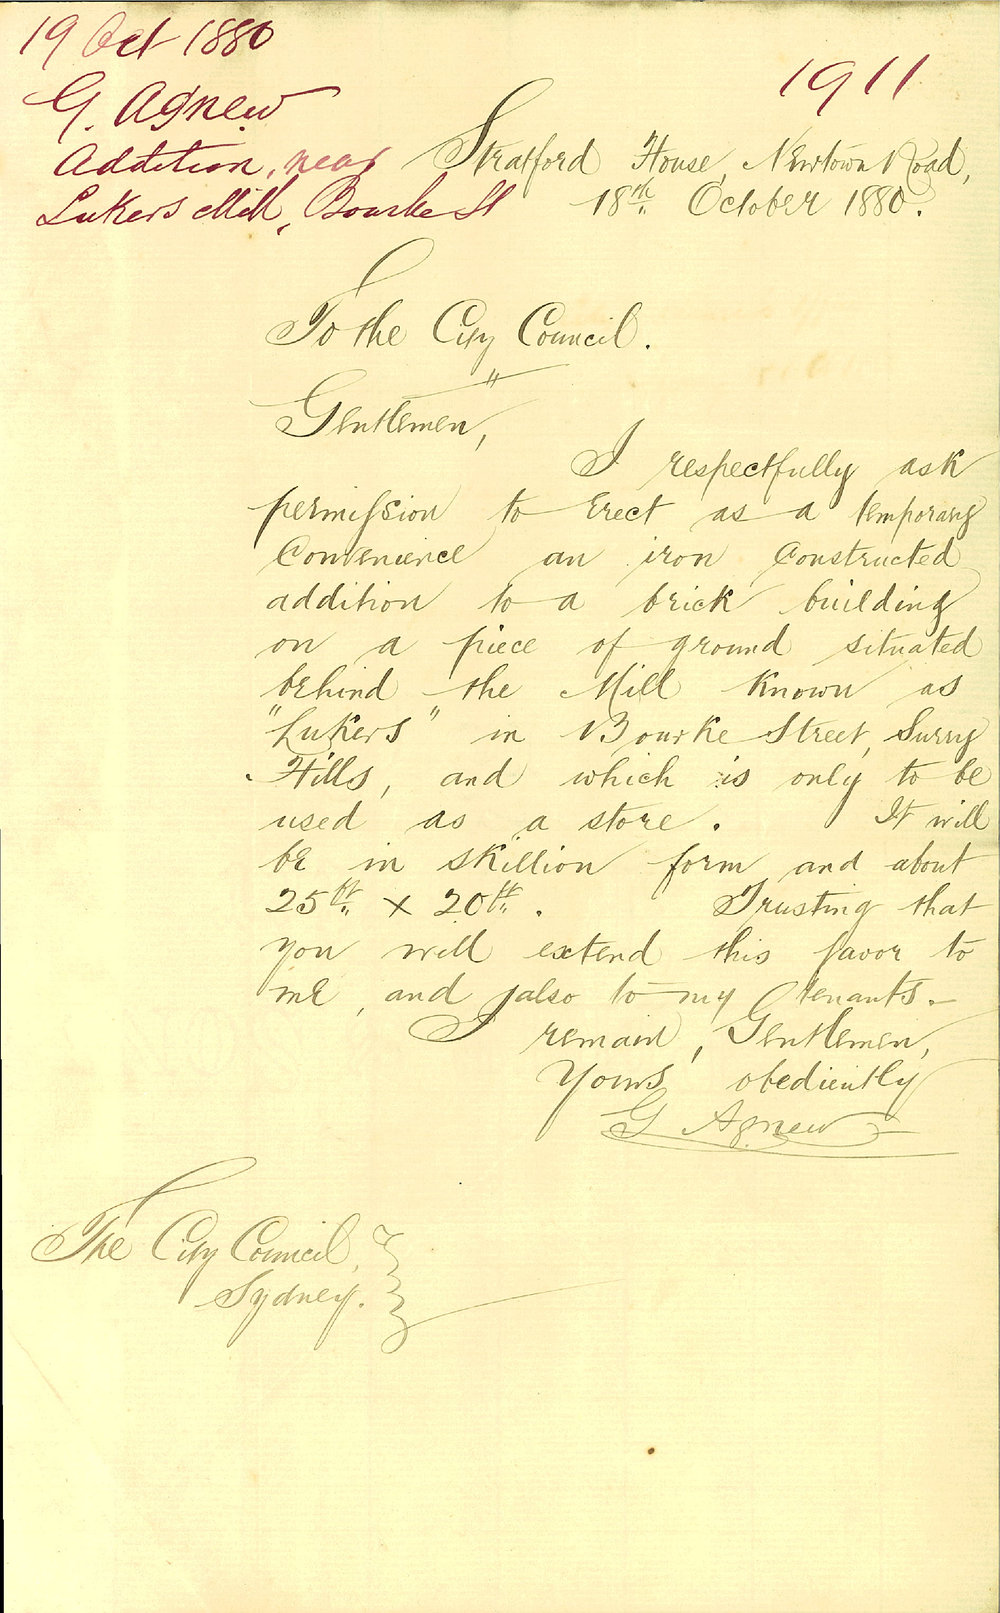 19 Oct 1880
G. Agnew
Addition, near
Lukers Mill, Bourke St
1911
Stratford House, Newtown Road,
18th October 1880.
To the City Council.
Gentlemen,
I respectfully ask
permission to Erect as a temporary
Convenience an iron Constructed
addition to a brick building
on a piece of ground situated
behind the Mill Known as
"Lukers" in Bourke Street, Surry
Hills, and which is only to be
used as a store. It will
be in skillion form and about
25ft x 20ft. Trusting that
you will extend this favor to
me, and also to my tenants.
I remain, Gentlemen,
Yours obediently
G Agnew
The City Council,
Sydney.